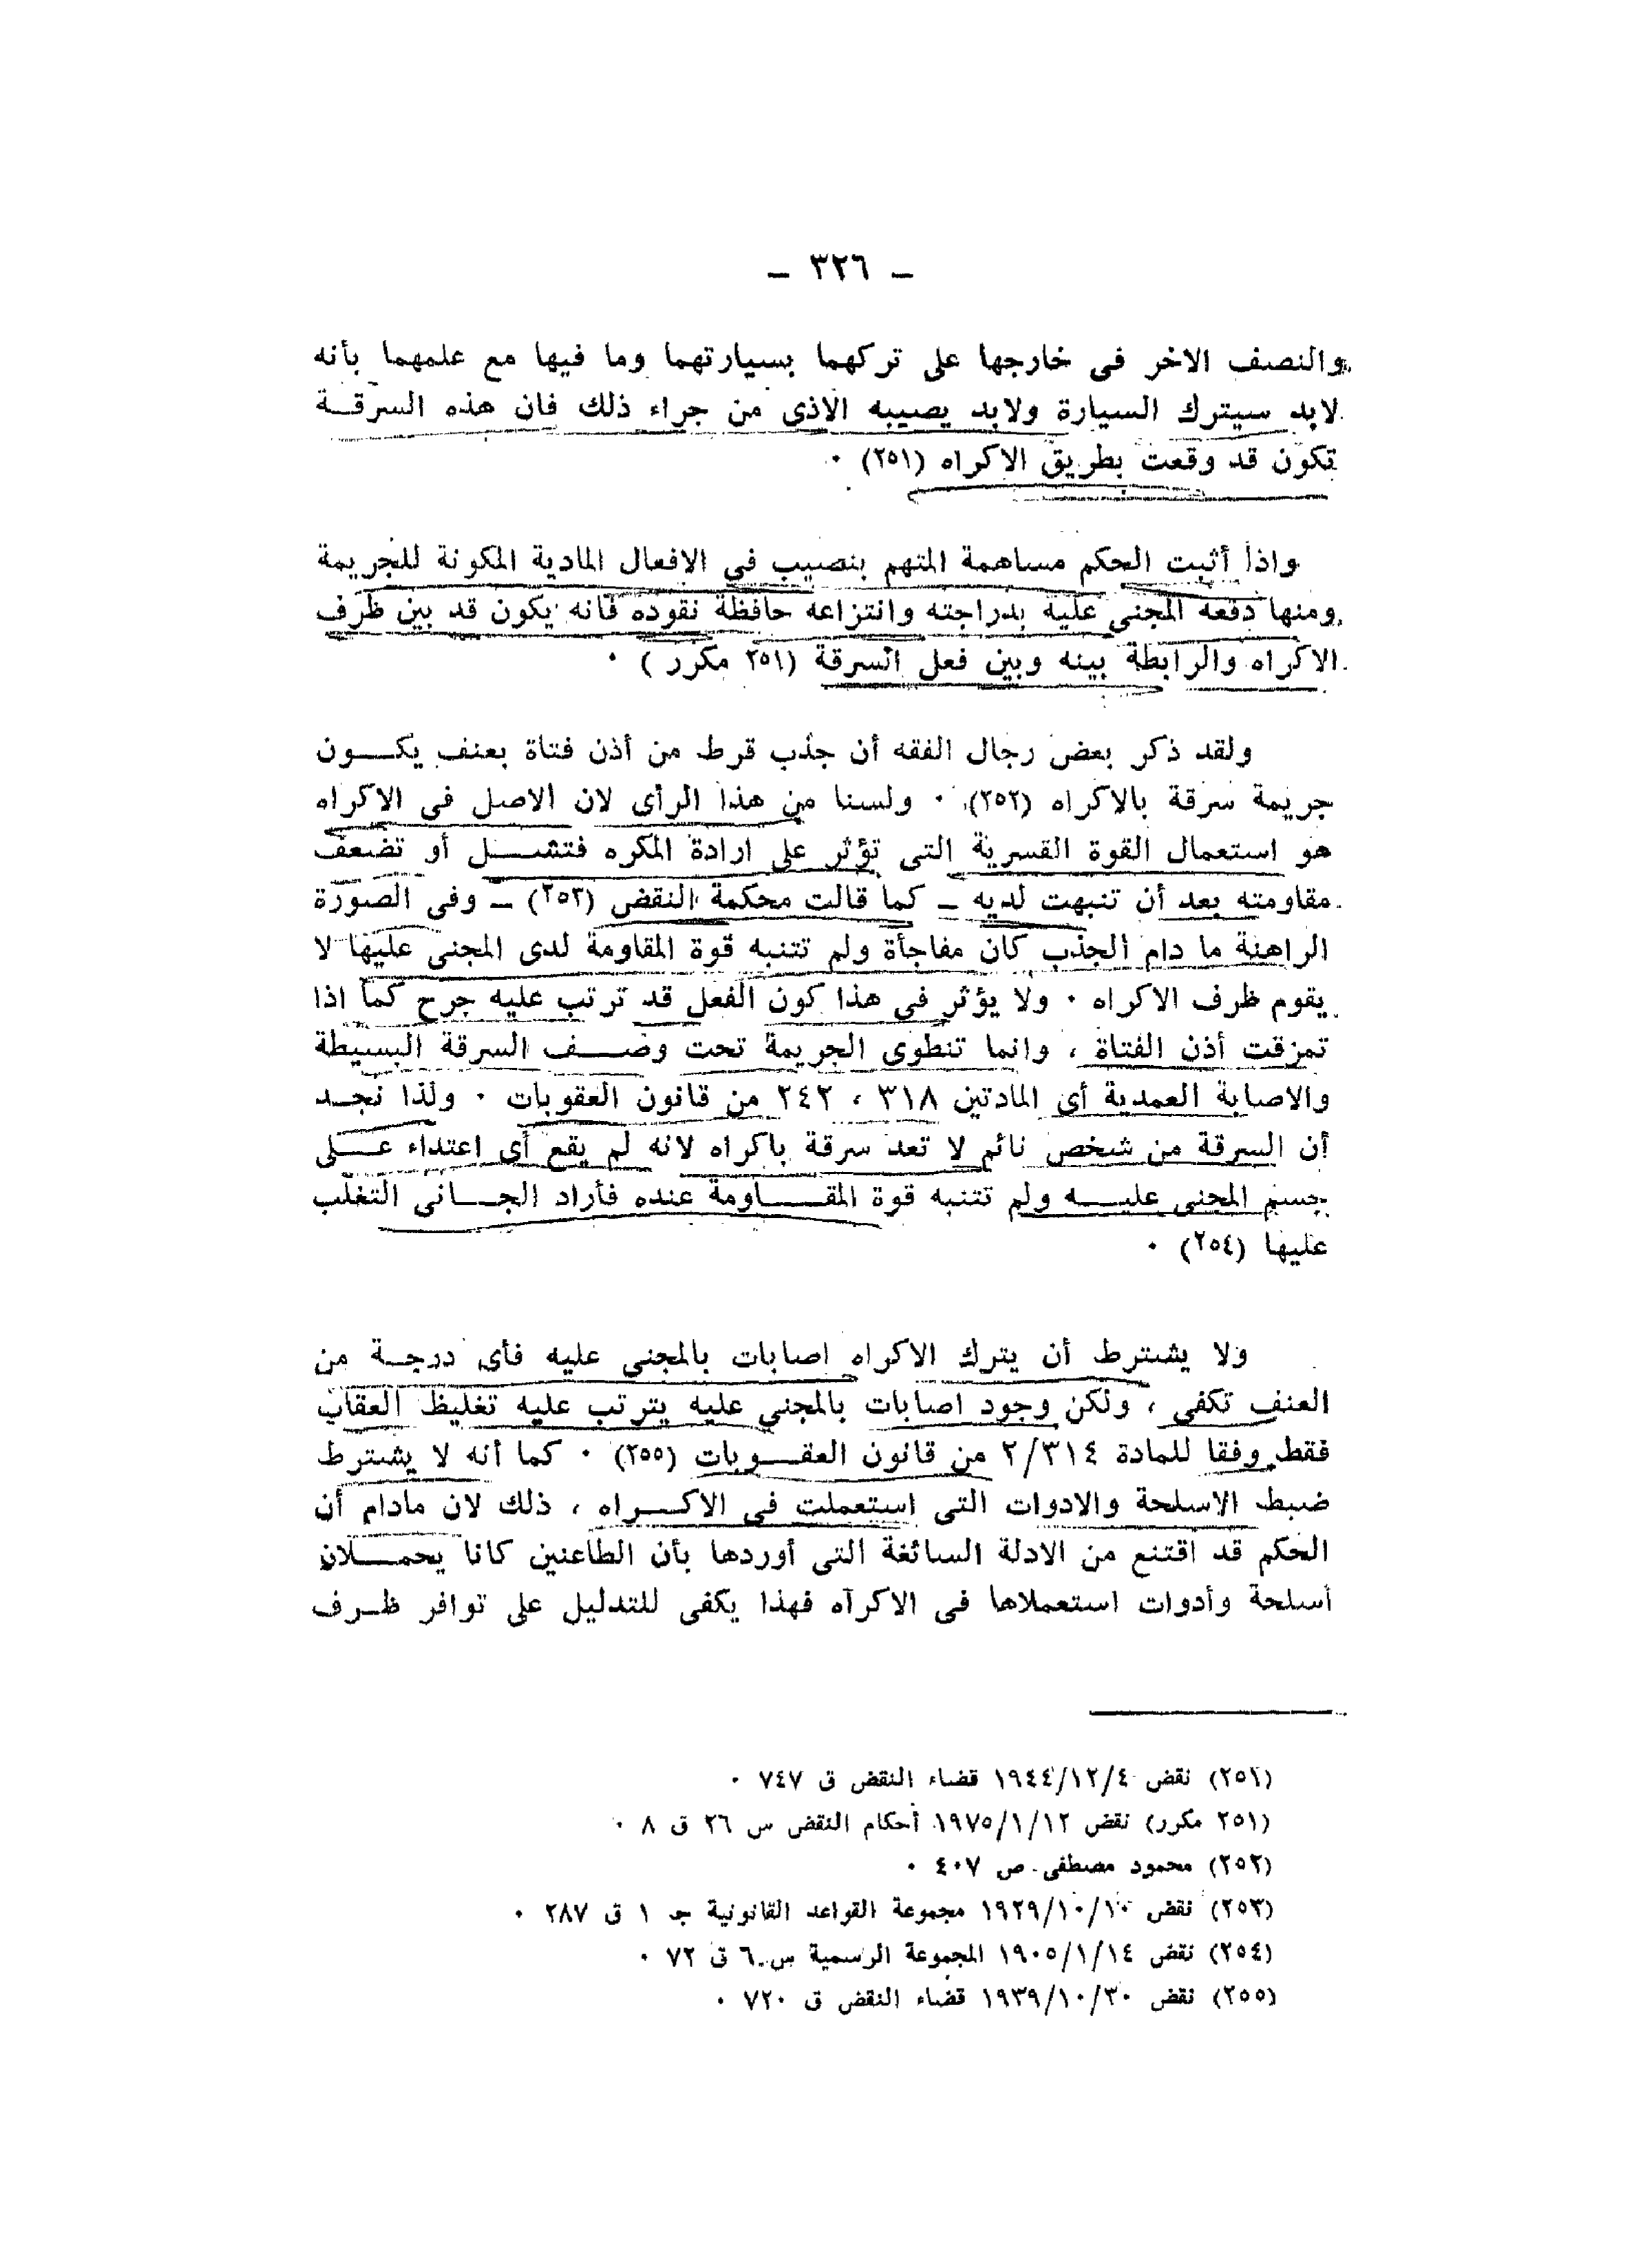 — ٣٢٦ —
والنصف الاخر فى خارجها على تركهما بسيارتهما وما فيها مع علمهما بأنه
لابد سيترك السيارة ولابد يصيبه الاذى من جراء ذلك فان هذه السرقة
تكون قد وقعت بطريق الاكراه (٢٥١) ٠
واذا أثبت الحكم مساهمة المتهم بنصيب في الافعال المادية المكونة للجريمة
ومنها دفعه المجنى عليه بدراجته وانتزاعه حافظة نقوده فانه يكون قد بين ظرف
الاكراه والرابطة بينه وبين فعل السرقة (٢٥١ مكرر ) ٠
ولقد ذكر بعض رجال الفقه أن جذب قرط من أذن فتاة بعنف يكون
جريمة سرقة بالاكراه (٢٥٢) ٠ ولسنا من هذا الرأى لان الاصل فى الاكراه
هو استعمال القوة القسرية التى تؤثر على ارادة المكره فتشل أو تضعف
مقاومته بعد أن تنبهت لديه — كما قالت محكمة النقض (٢٥٣) — وفى الصورة
الراهنة ما دام الجذب كان مفاجأة ولم تتنبه قوة المقاومة لدى المجنى عليها لا
يقوم ظرف الاكراه ٠ ولا يؤثر فى هذا كون الفعل قد ترتب عليه جرح كما اذا
تمزقت أذن الفتاة ، وانما تنطوى الجريمة تحت وصف السرقة البسيطة
والاصابة العمدية أى المادتين ٣١٨ ، ٢٤٢ من قانون العقوبات ٠ ولذا نجد
أن السرقة من شخص نائم لا تعد سرقة باكراه لانه لم يقع أى اعتداء على
جسم المجنى عليه ولم تتنبه قوة المقاومة عنده فأراد الجانى التغلب
عليها (٢٥٤) ٠
ولا يشترط أن يترك الاكراه اصابات بالمجنى عليه فأى درجة من
العنف تكفى ، ولكن وجود اصابات بالمجني عليه يترتب عليه تغليظ العقاب
فقط وفقا للمادة ٢/٣١٤ من قانون العقوبات (٢٥٥) ٠ كما أنه لا يشترط
ضبط الاسلحة والادوات التى استعملت فى الاكراه ، ذلك لان مادام أن
الحكم قد اقتنع من الادلة السائغة التى أوردها بأن الطاعنين كانا يحملان
أسلحة وأدوات استعملاها فى الاكراه فهذا يكفى للتدليل على توافر ظرف
(٢٥١) نقض ١٩٤٤/١٢/٤ قضاء النقض ق ٧٤٧ ٠
(٢٥١ مكرر) نقض ١٩٧٥/١/١٢ أحكام النقض س ٢٦ ق ٨ ٠
(٢٥٢) محمود مصطفى ص ٤٠٧ ٠
(٢٥٣) نقض ١٩٢٩/١٠/١٠ مجموعة القواعد القانونية جـ ١ ق ٢٨٧ ٠
(٢٥٤) نقض ١٩٠٥/١/١٤ المجموعة الرسمية س ٦ ق ٧٢ ٠
(٢٥٥) نقض ١٩٣٩/١٠/٣٠ قضاء النقض ق ٧٢٠ ٠